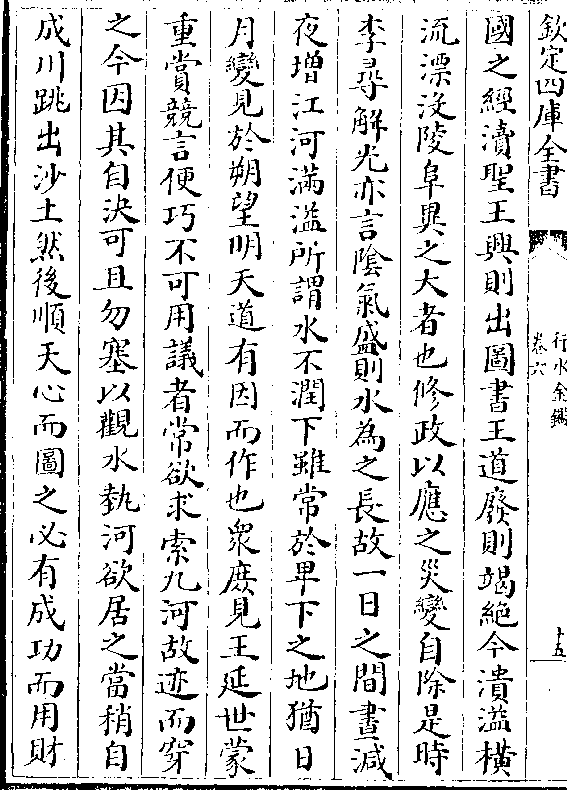 欽定四庫全書
行水金鑑
卷六
十五
國之經瀆聖王興則出圖書王道廢則竭絶今潰溢橫
流漂沒陵阜異之大者也修政以應之災變自除是時
李尋解光亦言隂氣盛則水為之長故一日之間晝減
夜增江河滿溢所謂水不潤下雖常於卑下之地猶日
月變見於朔望明天道有因而作也衆庶見王延世蒙
重賞競言便巧不可用議者常欲求索九河故迹而穿
之今因其自決可且勿塞以觀水埶河欲居之當稍自
成川跳出沙土然後順天心而圖之必有成功而用財